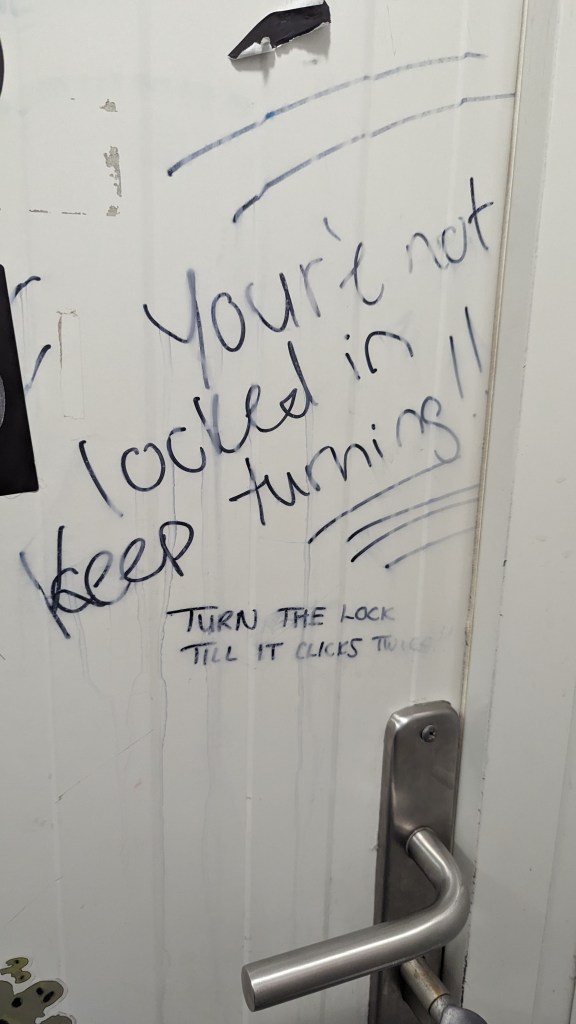 Your'e not
locked in
keep turning!!
TURN THE LOCK
TILL IT CLICKS TWICE